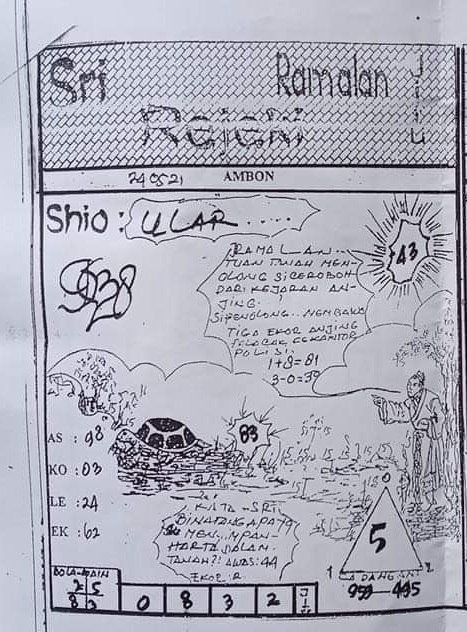 Sri
Ramalan
JITU
Rejeki
240521 AMBON
Shio : ULAR ....
43
RAMALAN...
TUAN TUAN MEN-
OLONG SICEROBOH
DARI KEJARAN AN-
JING..
SIPENOLONG.. MEMBAWA
TIGA EKOR ANJING
PELACAK KEKANTOR
POLISI..
1+8=81
3-0=39
83
AS : 98
KO : 03
LE : 24
EK : 62
KATA - SRI
BINATANG APA YG
MENYIMPAN
HARTA DALAM
TANAH?! AWAS: 44
EKOR:
0
5
1
2
CADANGAN
BOLA-MAIN
2 5
8 3
0 8 3 2
JITU